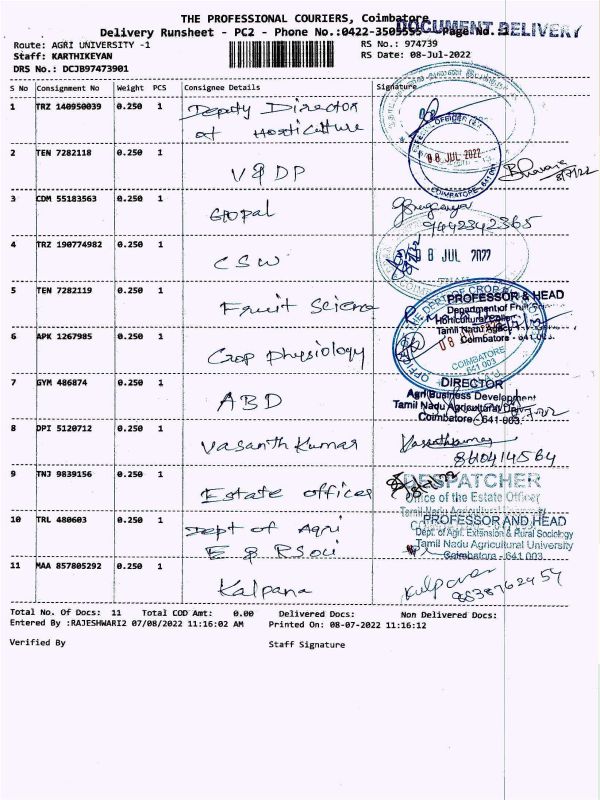 THE PROFESSIONAL COURIERS, Coimbatore
DOCUMENT DELIVERY
Delivery Runsheet - PC2 - Phone No.:0422-3509595 Page No.:1
Route: AGRI UNIVERSITY -1
RS No.: 974739
Staff: KARTHIKEYAN
RS Date: 08-Jul-2022
DRS No.: DCJB97473901
S No Consignment No Weight PCS Consignee Details Signature
1 TRZ 140950039 0.250 1 Deputy Director
of Horticulture
2 TEN 7282118 0.250 1 V&DP
08 JUL 2022
COIMBATORE
3 CDM 55183563 0.250 1 Gopal
9442342365
4 TRZ 190774982 0.250 1 CSW
08 JUL 2022
5 TEN 7282119 0.250 1 Fruit Science
PROFESSOR & HEAD
Department of Fruit
Horticultural
Tamil Nadu
Coimbatore - 641
6 APK 1267985 0.250 1 Crop Physiology
COIMBATORE
641 003
7 GYM 486874 0.250 1 ABD
DIRECTOR
Agri Business Development
Tamil Nadu Agricultural
Coimbatore - 641-003.
8 DPI 5120712 0.250 1 Vasanth Kumar
Vasanthkumar
860414564
9 TNJ 9839156 0.250 1 Estate officer
DESPATCHER
Office of the Estate Officer
10 TRL 480603 0.250 1 Dept of Agri
E & RSoci
PROFESSOR AND HEAD
Dept. of Agrl. Extension & Rural Sociology
Tamil Nadu Agricultural University
Coimbatore - 641 003.
11 MAA 857805292 0.250 1 Kalpana
Total No. Of Docs: 11 Total COD Amt: 0.00 Delivered Docs: Non Delivered Docs:
Entered By :RAJESHWARI2 07/08/2022 11:16:02 AM Printed On: 08-07-2022 11:16:12
Verified By Staff Signature